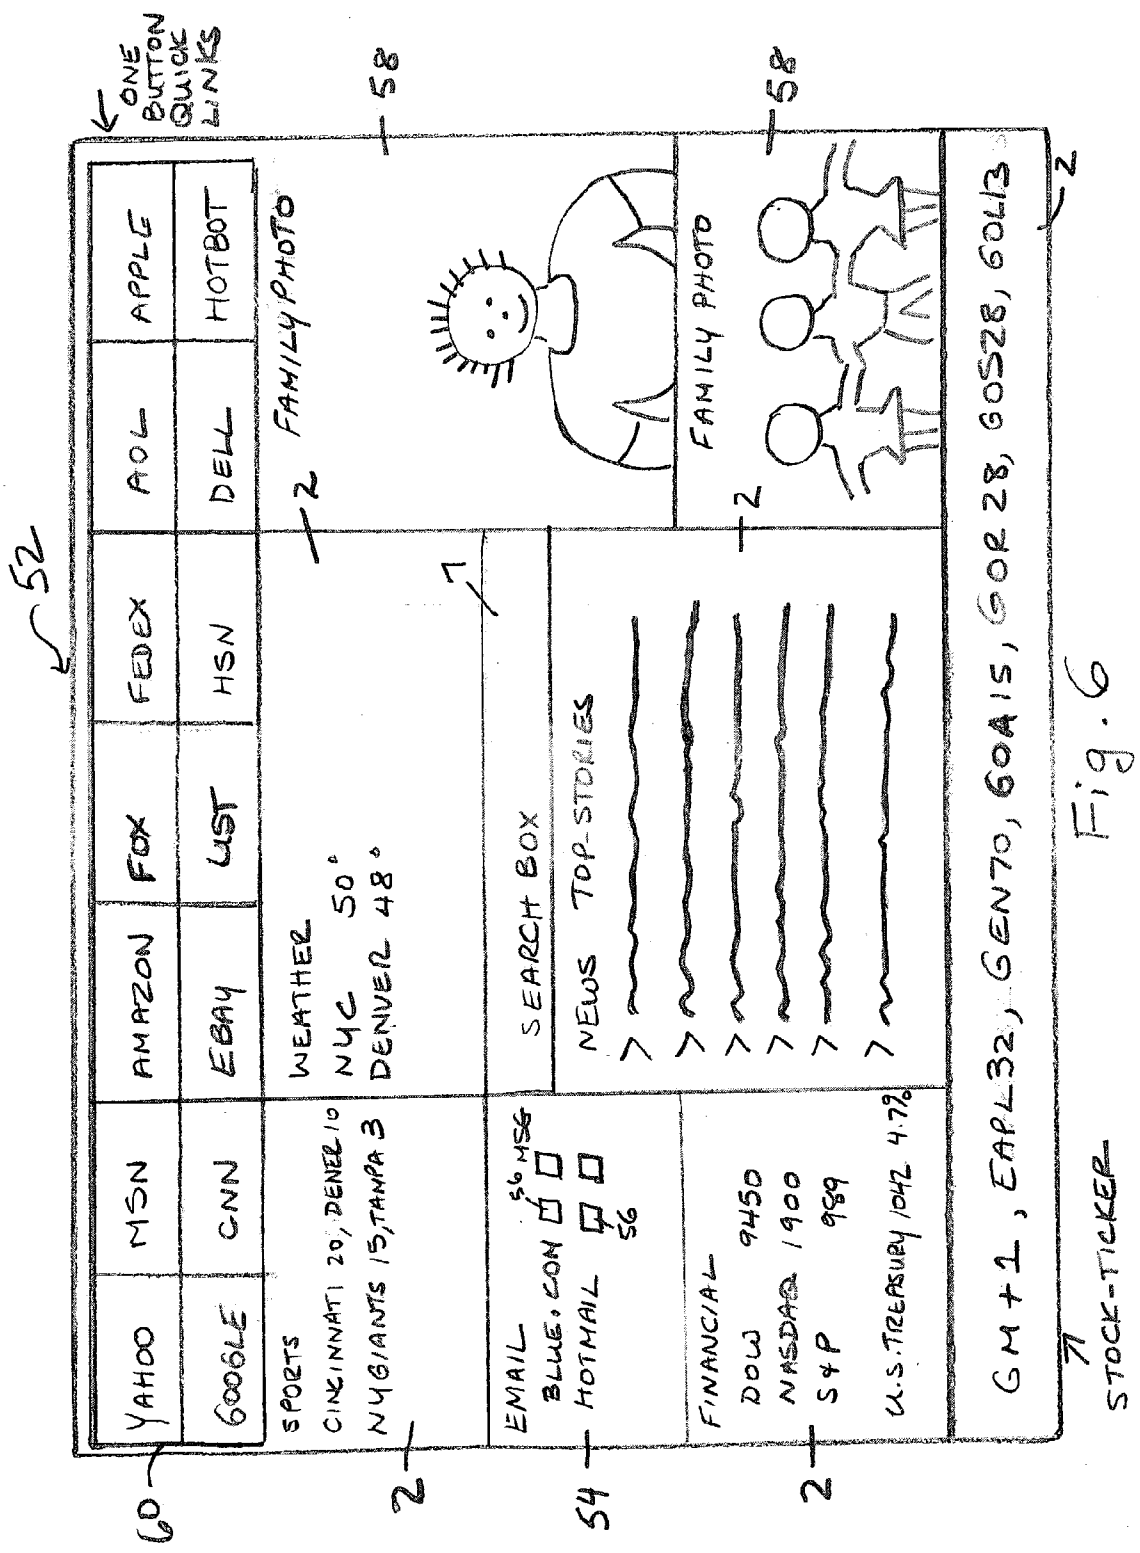 52
ONE
BUTTON
QUICK
LINKS
60
YAHOO MSN AMAZON FOX FEDEX AOL APPLE
GOOGLE CNN EBAY LIST HSN DELL HOTBOT
SPORTS
CINCINNATI 20, DENER 10
NYGIANTS 15, TAMPA 3
2
WEATHER
NYC 50°
DENVER 48°
2
FAMILY PHOTO
58
EMAIL
BLUE.COM 56 MSG
HOTMAIL
56
54
SEARCH BOX
7
NEWS TOP-STORIES
>
>
>
>
>
>
2
FAMILY PHOTO
58
FINANCIAL
DOW 9450
NASDAQ 1900
S&P 989
U.S. TREASURY 1042 4.7%
2
GM+1, EAPL32, GEN70, GOA15, GOR28, GOS28, GOL13
2
STOCK-TICKER
Fig. 6